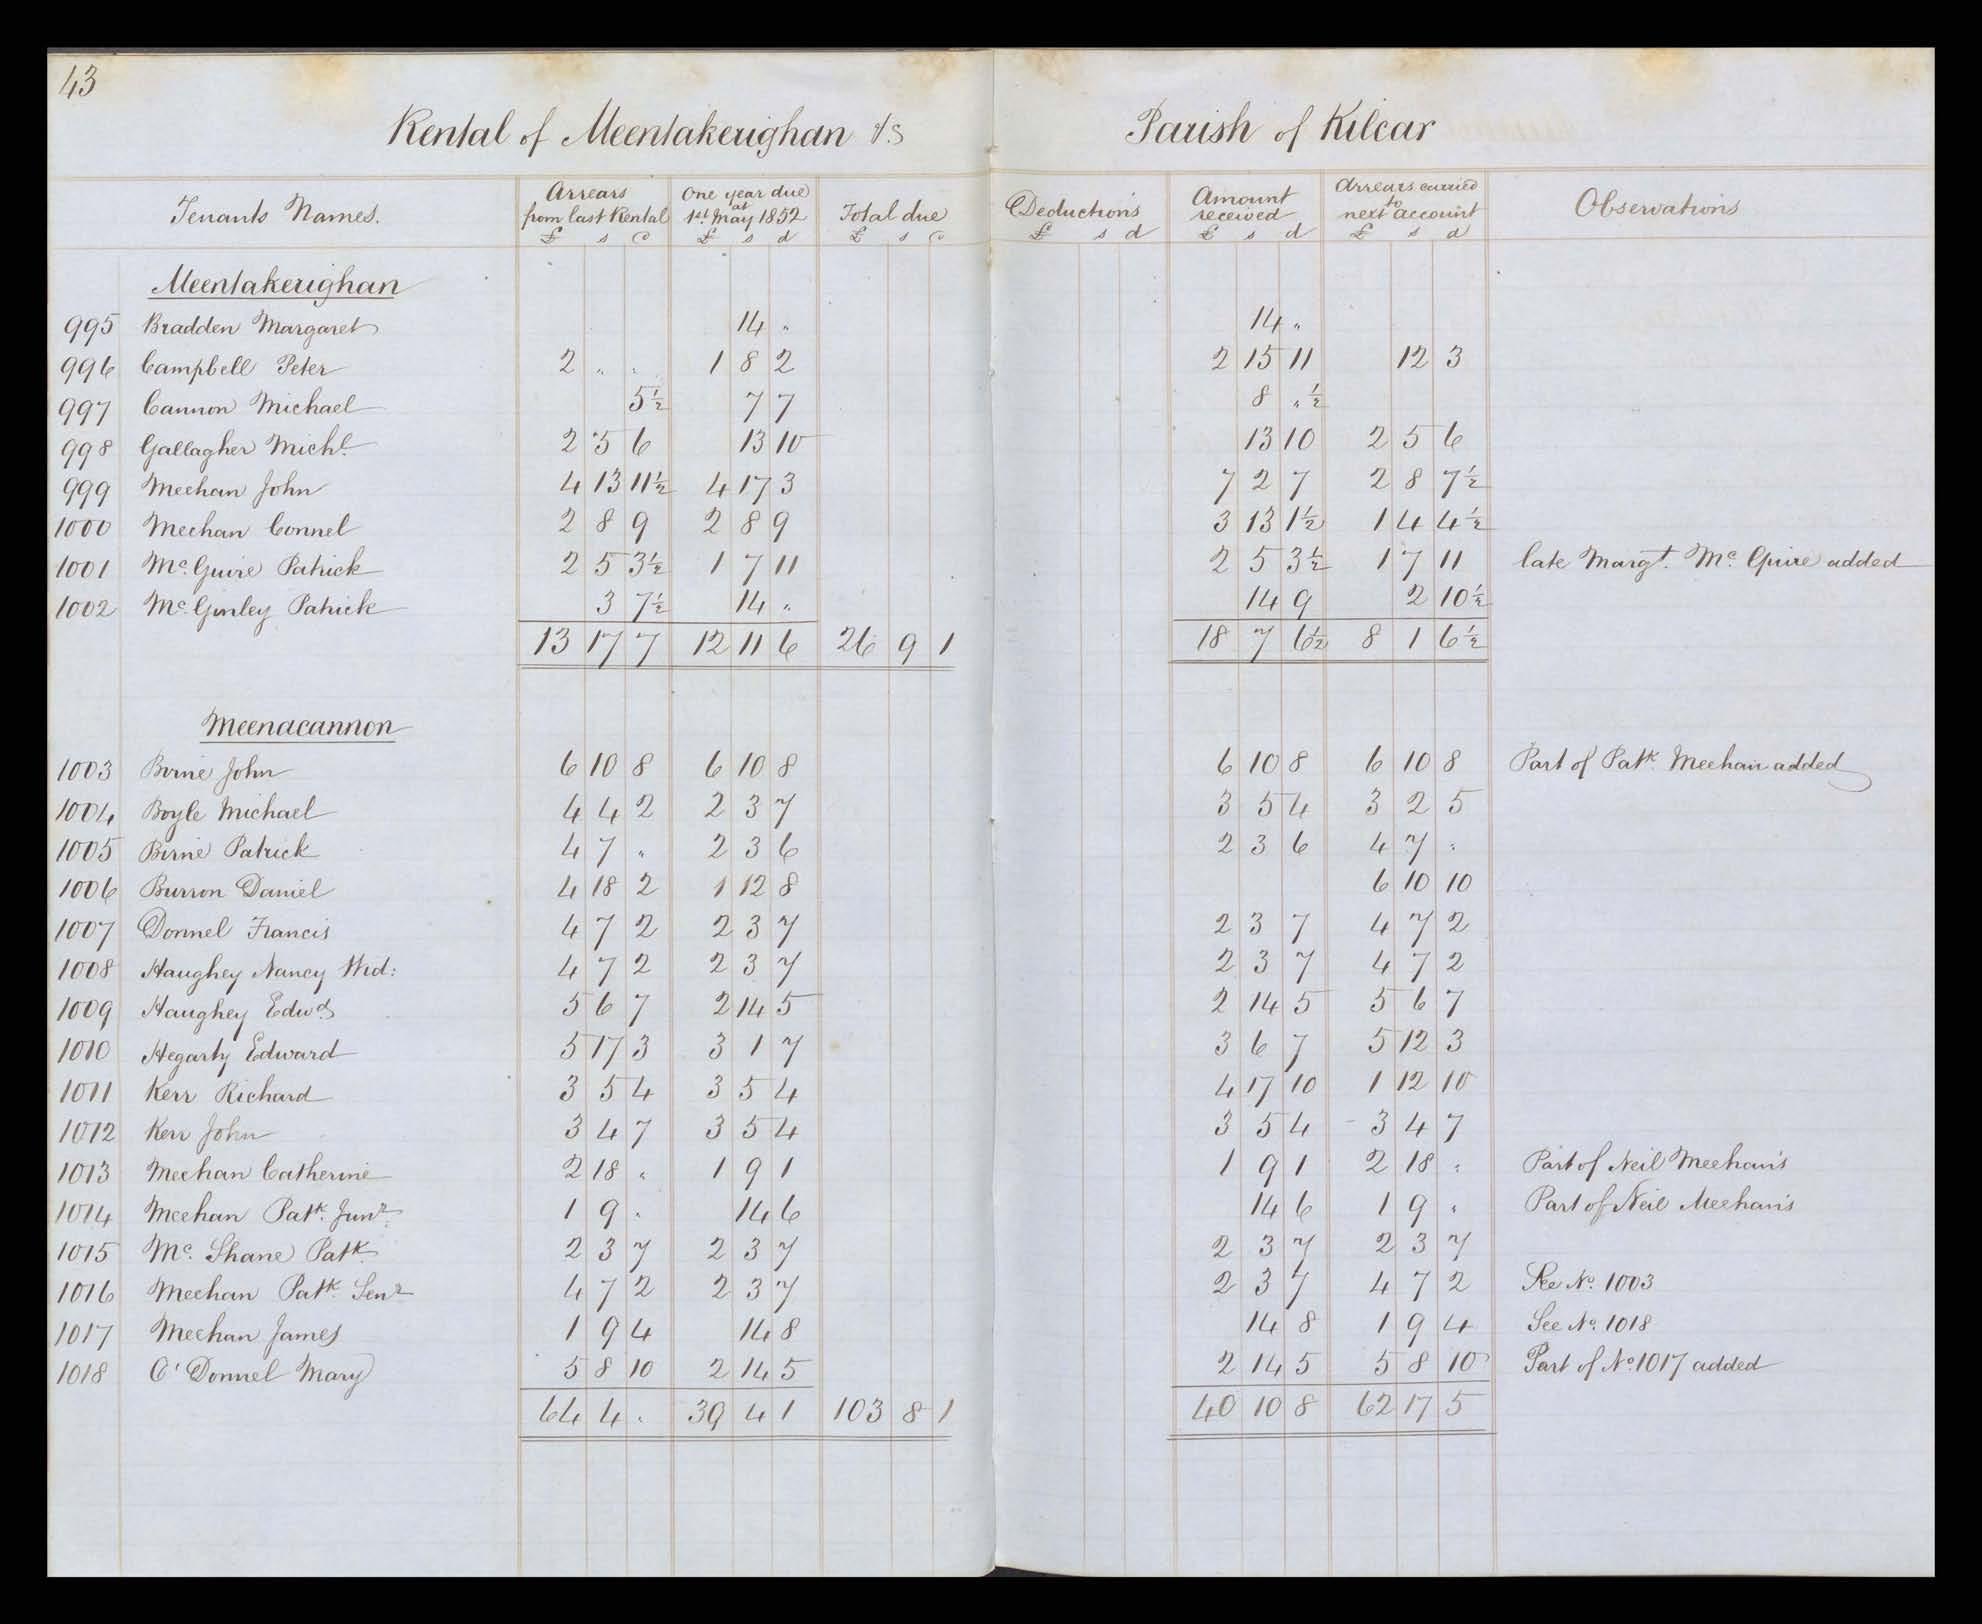 43
Rental of Meentakerighan &c Parish of Kilcar
Tenants Names. Arrears from last Rental £ s d One year due at 1st May 1852 £ s d Total due £ s d Deductions £ s d Amount received £ s d Arrears carried to next account £ s d Observations
Meentakerighan
995 Bradden Margaret 14 " 14 "
996 Campbell Peter 2 " " 1 8 2 2 15 11 12 3
997 Cannon Michael 5½ 7 7 8 " ½
998 Gallagher Michl. 2 5 6 13 10 13 10 2 5 6
999 Meehan John 4 13 11½ 4 17 3 7 2 7 2 8 7½
1000 Meehan Connel 2 8 9 2 8 9 3 13 1½ 1 4 4½
1001 Mc. Guire Patrick 2 5 3½ 1 7 11 2 5 3½ 1 7 11 late Margt. Mc. Guire added
1002 Mc. Ginley Patrick 3 7½ 14 " 14 9 2 10½
13 17 7 12 11 6 26 9 1 18 7 6½ 8 1 6½
Meenacannon
1003 Birne John 6 10 8 6 10 8 6 10 8 6 10 8 Part of Patk. Meehan added
1004 Boyle Michael 4 4 2 2 3 7 3 5 4 3 2 5
1005 Birne Patrick 4 7 " 2 3 6 2 3 6 4 7 "
1006 Burron Daniel 4 18 2 1 12 8 6 10 10
1007 Donnel Francis 4 7 2 2 3 7 2 3 7 4 7 2
1008 Haughey Nancy Wid: 4 7 2 2 3 7 2 3 7 4 7 2
1009 Haughey Edwd. 5 6 7 2 14 5 2 14 5 5 6 7
1010 Hegarty Edward 5 17 3 3 1 7 3 6 7 5 12 3
1011 Kerr Richard 3 5 4 3 5 4 4 17 10 1 12 10
1012 Kerr John 3 4 7 3 5 4 3 5 4 3 4 7
1013 Meehan Catherine 2 18 " 1 9 1 1 9 1 2 18 " Part of Neil Meehan's
1014 Meehan Patk. Junr. 1 9 " 14 6 14 6 1 9 " Part of Neil Meehan's
1015 Mc. Shane Patk. 2 3 7 2 3 7 2 3 7 2 3 7
1016 Meehan Patk. Senr. 4 7 2 2 3 7 2 3 7 4 7 2 See No. 1003
1017 Meehan James 1 9 4 14 8 14 8 1 9 4 See No. 1018
1018 O'Donnel Mary 5 8 10 2 14 5 2 14 5 5 8 10 Part of No. 1017 added
64 4 " 39 4 1 103 8 1 40 10 8 62 17 5